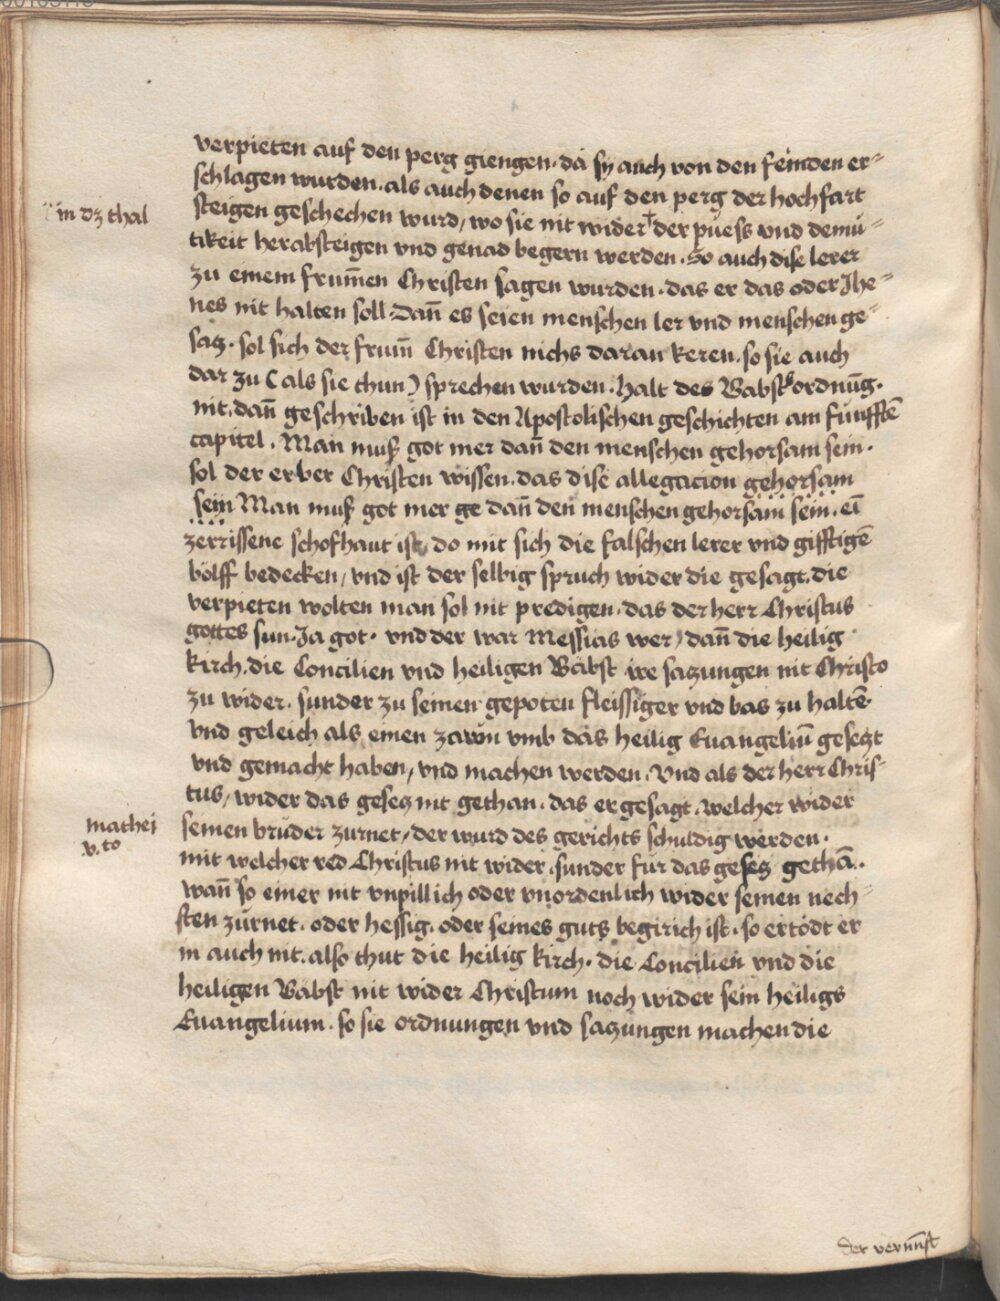 verpieten auf den perg giengen. da sy auch von den feinden er=
schlagen wurden. als auch denen so auf den perg der hochfart
steigen geschechen wurd, wo sie nit wider der puess vnd demu=
in dz thal
tikeit herabsteigen vnd genad begern werden. So auch dise lerer
zu einem frum̄en Christen sagen wurden. das er das oder Jhe=
nes nit halten soll. Dan̄ es seien menschen ler vnd menschen ge=
saz. sol sich der frum̄ Christen nichs daran keren. so sie auch
dar zu (als sie thun) sprechen wurden. Halt des Babsts ordnūg.
nit. dan̄ geschriben ist in den Apostolischen geschichten am funfftē
capitel. Man muß got mer dan̄ den menschen gehorsam sein.
sol der erber Christen wissen. das dise allegacion gehorsam
sein Man muß got mer ge dan̄ den menschen gehorsam sein. eī
zerrissene schofhaut ist, do mit sich die falschen lerer vnd gifftigē
bolff bedecken, vnd ist der selbig spruch wider die gesagt. die
verpieten wolten man sol nit predigen. das der herr Christus
gottes sun. Ja got. vnd der war Messias wer, dan̄ die heilig
kirch. die Concilien vnd heiligen Bäbst ire sazungen nit Christo
zu wider. sunder zu seinen gepoten fleissiger vnd bas zu haltē
vnd geleich als einen zawn vmb das heilig Euangeliū gesezt
vnd gemacht haben, vnd machen werden. Vnd als der herr Chris=
tus, wider das gesez nit gethan. das er gesagt. welcher wider
mathei
v.to
seinen bruder zurnet, der wurd des gerichts schuldig werden.
mit welcher red Christus nit wider. sunder fur das gesez gethā.
wan̄ so einer nit vnpillich oder vnordenlich wider seinen nech=
sten zurnet. oder hessig. oder seines guts begirich ist. so ertödt er
in auch nit. also thut die heilig kirch. die Concilien vnd die
heiligen Bäbst nit wider Christum noch wider sein heiligs
Euangelium. so sie ordnungen vnd sazungen machen die
der vernunft